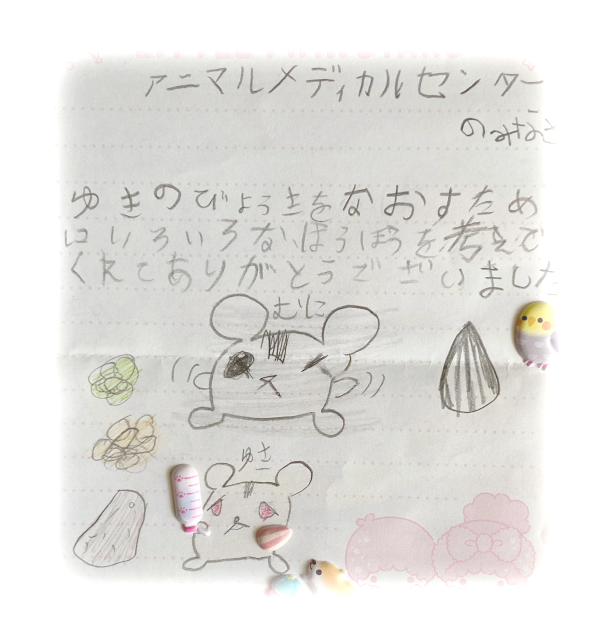 アニマルメディカルセンター
のみなさ
ゆきのびょうきをなおすため
にいろいろなほうほうを考えて
くれてありがとうございました
むに
ゆき